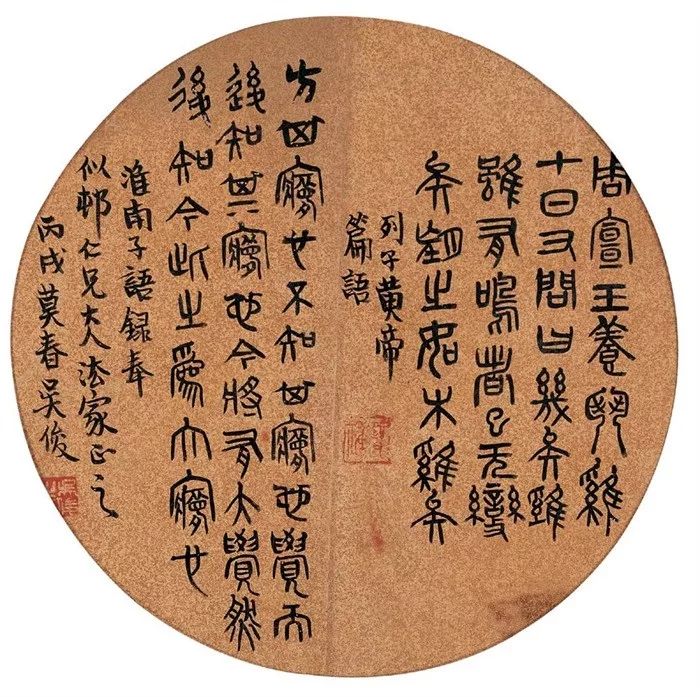 周宣王養鬭雞
十日又問曰幾矣雞
雖有鳴者已无變
矣望之如木雞矣
列子黄帝
篇語
方其夢也不知其夢也覺而
後知其夢也今將有大覺然
後知今此之爲大夢也
淮南子語録奉
似邨仁兄大人法家正之
丙戌莫春吴俊